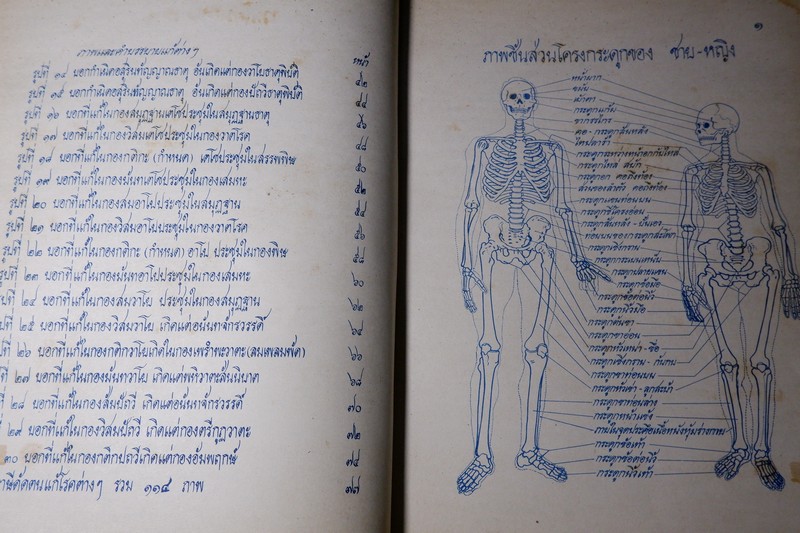 ภาพและคำบรรยายแก้ต่างๆ
หน้า
รูปที่ ๑๔ บอกกำเนิดอสุรินทัญญาณธาตุ อันเกิดแต่กองวาโยธาตุพิบัติ ๔๒
รูปที่ ๑๕ บอกกำเนิดอสุรินทัญญาณธาตุ อันเกิดแต่กองปัถวีธาตุพิบัติ ๔๔
รูปที่ ๑๖ บอกที่แก้ในกองสมุฏฐานเตโชประชุมในสมุฏฐานธาตุ
รูปที่ ๑๗ บอกที่แก้ในกองวิสมเตโชประชุมในกองวาตโรค
รูปที่ ๑๘ บอกที่แก้ในกองกติกะ (กำหนด) เตโชประชุมในสรรพพิษ ๕๐
รูปที่ ๑๙ บอกที่แก้ในกองมันทเตโชประชุมในกองเสมหะ ๕๒
รูปที่ ๒๐ บอกที่แก้ในกองสมอาโปประชุมในสมุฏฐาน ๕๔
รูปที่ ๒๑ บอกที่แก้ในกองวิสมอาโปประชุมในกองวาตโรค ๕๖
รูปที่ ๒๒ บอกที่แก้ในกองกติกะ (กำหนด) อาโป ประชุมในกองพิษ ๕๘
รูปที่ ๒๓ บอกที่แก้ในกองมันทอาโปประชุมในกองเสมหะ ๖๐
รูปที่ ๒๔ บอกที่แก้ในกองสมวาโย ประชุมในกองสมุฏฐาน ๖๒
ปที่ ๒๕ บอกที่แก้ในกองวิสมวาโย เกิดแต่อนันทจักรวรรดิ์ ๖๔
ที่ ๒๖ บอกที่แก้ในกองกติกวาโยเกิดในกองเพรำพะวาตะ ๖๖
ที่ ๒๗ บอกที่แก้ในกองมันทวาโย เกิดแต่พหิวาตะสันนิบาต ๖๘
ที่ ๒๘ บอกที่แก้ในกองสมปัถวี เกิดแต่อนันทจักรวรรดิ์ ๗๐
๒๙ บอกที่แก้ในกองวิสมปัถวี เกิดแต่กองตรีกูฏวาตะ ๗๒
๓๐ บอกที่แก้ในกองกติกปถวีเกิดแต่กองอัมพฤกษ์ ๗๔
าษีดัดตนแก้โรคต่างๆ รวม ๑๑๔ ภาพ ๗๗
๑
ภาพชิ้นส่วนโครงกระดูกของ ชาย-หญิง
หน้าผาก
ขมับ
เบ้าตา
กระดูกแก้ม
ขากรรไกร
คอ-กระดูกสันหลัง
ไหปลาร้า
กระดูกระหว่างหน้าอกกับไหล่
กระดูกไหล่ สบัก
กระดูกอก คอถึงท้อง
ส่วนของลำตัว คอถึงท้อง
กระดูกแขนท่อนบน
กระดูกซี่โครงอ่อน
กระดูกสันหลัง-บั้นเอว
ท่อนบนของกระดูกสะโพก
กระดูกเชิงกราน
กระดูกปลายแขน
กระดูกข้อมือ
กระดูกข้อต่อนิ้ว
กระดูกนิ้วมือ
กระดูกต้นขา
กระดูกขาอ่อน
กระดูกหัวเหน่า
กระดูกเชิงกราน-ก้นกบ
กระดูกขาท่อนบน
กระดูกหัวเข่า-ลูกสะบ้า
กระดูกขาท่อนล่าง
กระดูกหน้าแข้ง
กระดูกข้อเท้า
กระดูกข้อต่อนิ้ว
กระดูกนิ้วเท้า